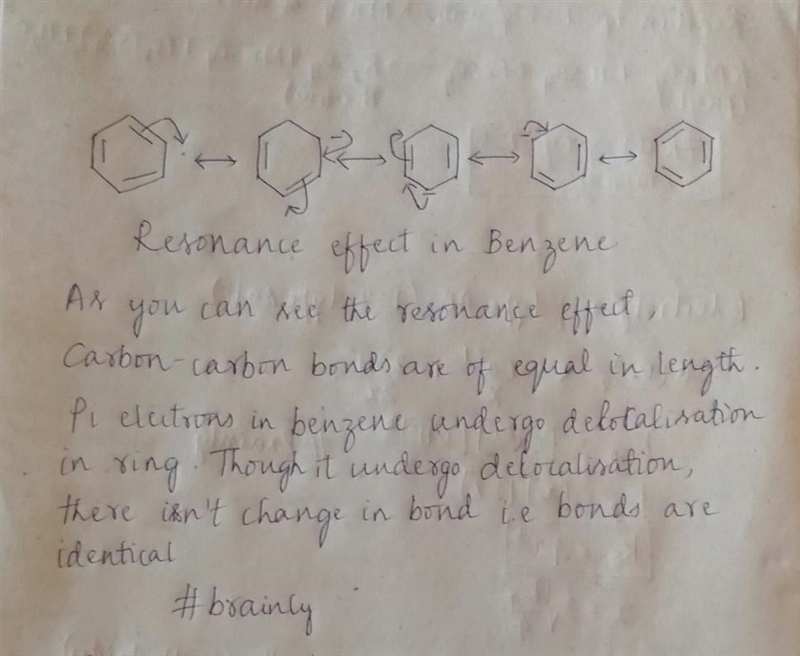 Resonance effect in Benzene
As you can see the resonance effect,
Carbon-carbon bonds are of equal in length.
Pi electrons in benzene undergo delocalisation
in ring. Though it undergo delocalisation,
there isn't change in bond i.e bonds are
identical
#brainly